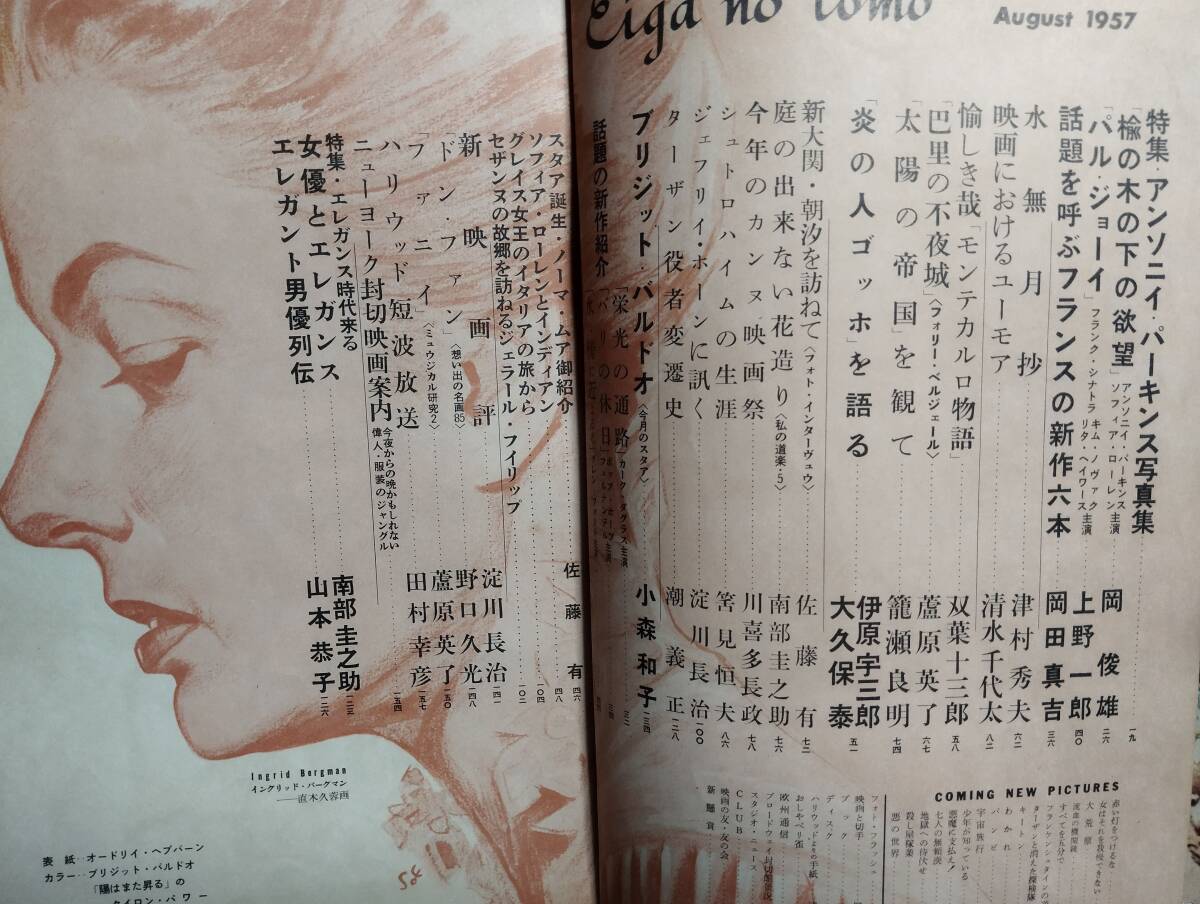 Eiga no tomo
August 1957
特集・アンソニイ・パーキンス写真集 一九
「楡の木の下の欲望」 アンソニイ・パーキンス ソフィア・ローレン 主演 岡俊雄 二六
「パル・ジョーイ」 フランク・シナトラ キム・ノヴァク リタ・ヘイワース 主演 上野一郎 四〇
話題を呼ぶフランスの新作六本 岡田真吉 三六
水無月抄 津村秀夫 六二
映画におけるユーモア 清水千代太 八二
愉しき哉「モンテカルロ物語」 双葉十三郎 五八
「巴里の不夜城」〈フォリー・ベルジェール〉 蘆原英了 六七
「太陽の帝国」を観て 籠瀬良明 七四
「炎の人ゴッホ」を語る 伊原宇三郎 大久保泰 五一
新大関・朝汐を訪ねて〈フォト・インターヴュウ〉 佐藤有 七二
庭の出来ない花造り〈私の道楽・5〉 南部圭之助 七六
今年のカンヌ映画祭 川喜多長政 七八
シュトロハイムの生涯 筈見恒夫 八六
ジェフリイ・ホーンに訊く 淀川長治 一〇〇
ターザン役者変遷史 潮義正 一二八
ブリジット・バルドオ〈今月のスタア〉 小森和子 一三四
話題の新作紹介
「栄光の通路」カーク・ダグラス主演
「パリの休日」
スタア誕生・ノーマ・ムア御紹介 佐藤有 四六
ソフィア・ローレンとインディアン 四八
グレイス女王のイタリアの旅から 一〇四
セザンヌの故郷を訪ねるジェラール・フイリップ 一〇二
新映画評 淀川長治 一四一
「ドン・ファン」〈想い出の名画85〉 野口久光 一四八
「ファニイ」〈ミュウジカル研究2〉 蘆原英了 一五〇
ハリウッド短波放送 田村幸彦 一五七
ニューヨーク封切映画案内 今夜からの晩かもしれない 偉人・服装のジャングル 一五四
特集・エレガンス時代来る
女優とエレガンス 南部圭之助 一二三
エレガント男優列伝 山本恭子 一二六
Ingrid Bergman
イングリッド・バーグマン
——直木久蓉画
表紙‥オードリイ・ヘプバーン
カラー‥ブリジット・バルドオ
「陽はまた昇る」の
タイロン・パワー
COMING NEW PICTURES
赤い灯をつけるな
女はそれを我慢できない
大荒原
流血の機関銃
すべてを五分で
フランケンシュタインの
ターザンと消えた探検隊
キートン
わかれ
バンビ
宇宙旅行
少年が知っている
悪魔に支払え!
七人の無頼漢
地獄への待伏せ
殺し屋稼業
悪の世界
フォト・フラッシュ
映画と切手
ブック
ディスク
ハリウッドよりの手紙
おしゃべり雀
欧州通信
ブロードウェイ封切館
スタジオ・ニュース
CLUB
映画の友・友の会
新懸賞